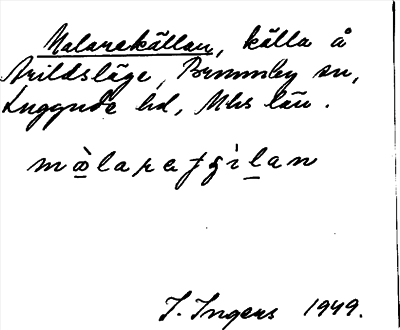 Malarekällan, källa å
Arildsläge, Brunnby sn,
Luggude hd, Mhs län.
màlarаçìlan
I. Ingers 1949.